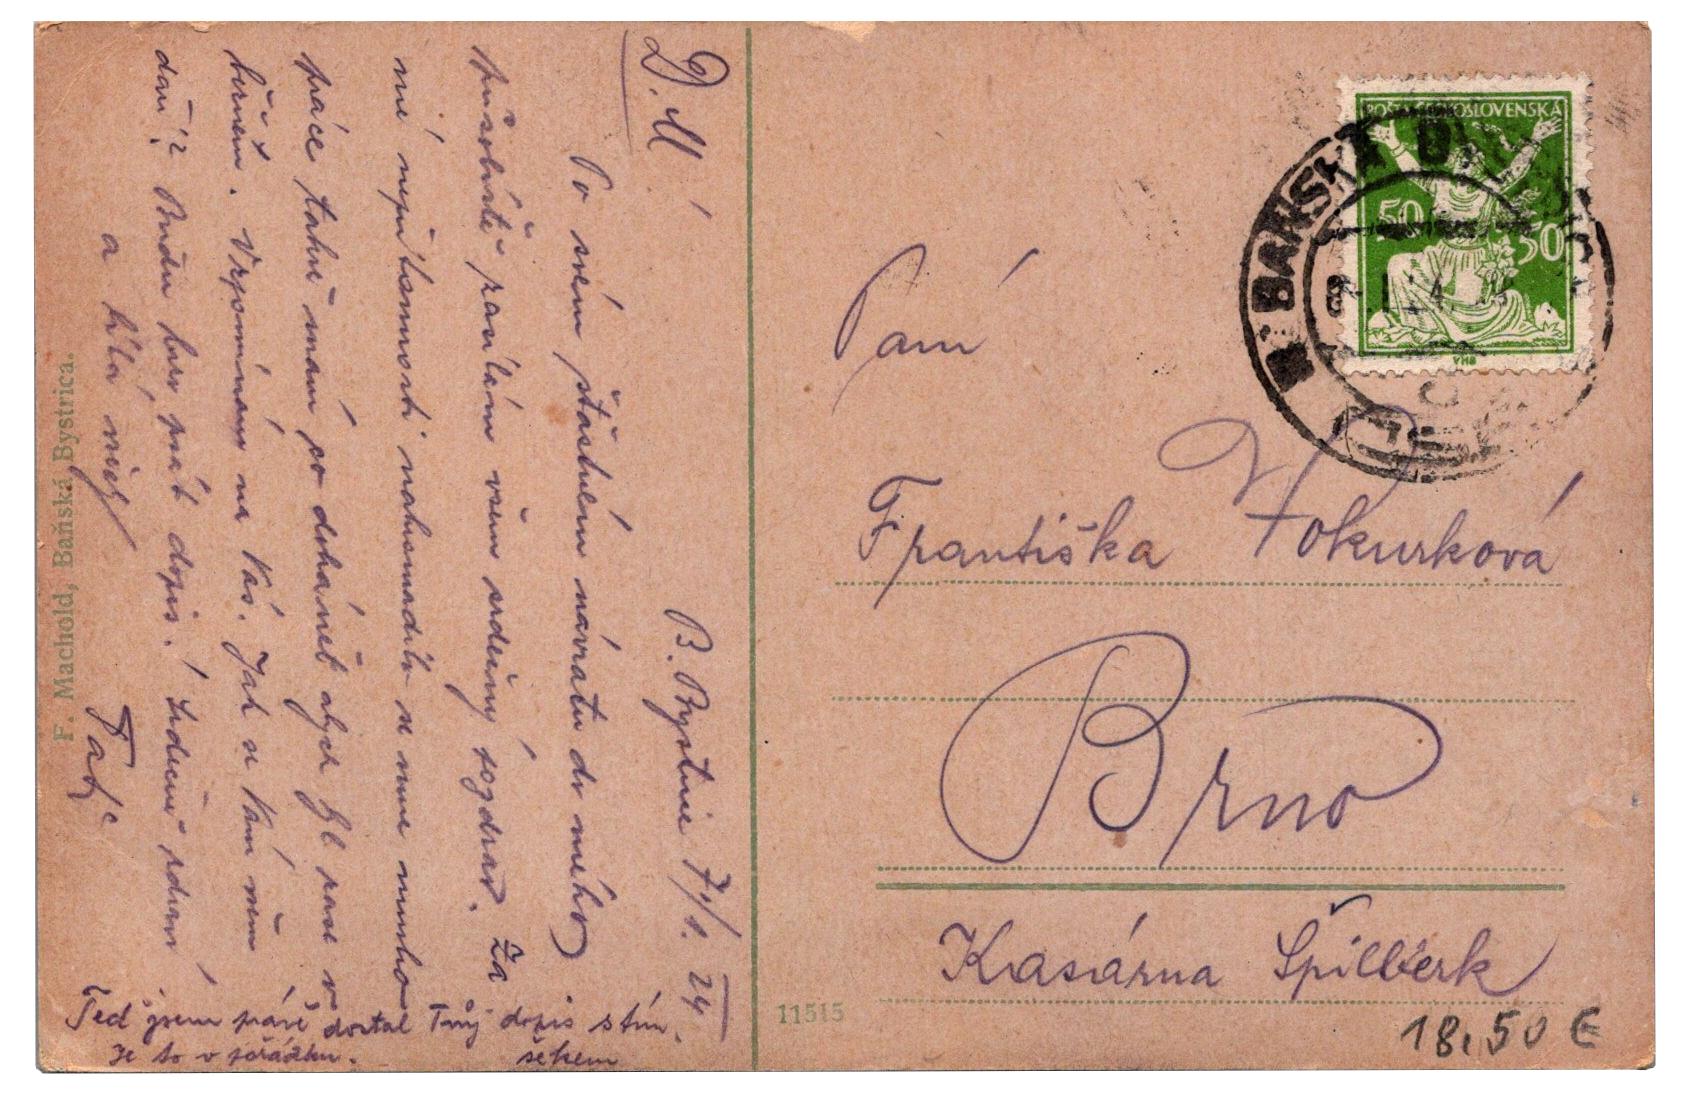 D. M!
B. Bystrice 7/1. 24
Po svém šťastném návratu do mého
působiště zasílám všem srdečný pozdrav. Za
mé nepřítomnosti nahromadilo se mně mnoho
práce takže mám co doháněti abych byl zase v
Vzpomínám na Vás. Jak se Vám všem
daří? Budu brzy psát dopis. Srdečně zdraví
a líbá
Ted' jsem právě dostal Tvůj dopis s tím.
Je to v pořádku.
F. Machold, Baňská Bystrica.
11515
POŠTA ČESKOSLOVENSKÁ
50 50
BAŇSKÁ BYSTRICA
Paní
Františka Vokurková
Brno
Kasárna Špilberk
18,50 €